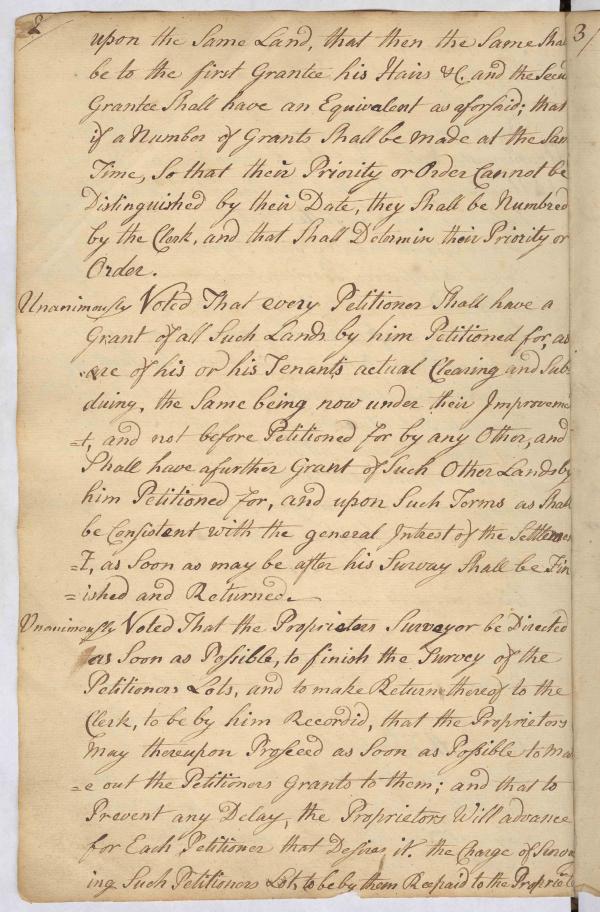 2
3/
upon the Same Land, that then the Same Shal
be to the first Grantee his Hairs &C. and the Secu
Grantee Shall have an Equivalent as aforsaid; that
if a Number of Grants Shall be made at the Sam
Time, So that their Priority or Order Cannot be
Distinguished by their Date, they Shall be Numbred
by the Clerk, and that Shall Determin their Priority or
Order.
Unanimously Voted That every Petitioner Shall have a
Grant of all Such Lands by him Petitioned for, as
are of his or his Tenants actual Clearing and Sub
duing, the Same being now under their Improveme
=t, and not before Petitioned for by any Other, and
Shall have a further Grant of Such Other Lands by
him Petitioned for, and upon Such Terms as Shall
be Consistent with the general Intrest of the Settlemen
=t, as Soon as may be after his Survay Shall be Fin
=ished and Returned.
Unanimously Voted That the Proprietors Surveyor be Directed
as Soon as Possible, to finish the Survey of the
Petitioners Lots, and to make Return thereof to the
Clerk, to be by him Recordid, that the Proprietors
may thereupon Proseed as Soon as Possible to Mak
=e out the Petitioners Grants to them; and that to
Prevent any Delay, the Proprietors Will advance
for Each Petitioner that Desires it. the Charge of Surva
ing Such Petitioners Lot, to be by them Reepaid to the Propriet